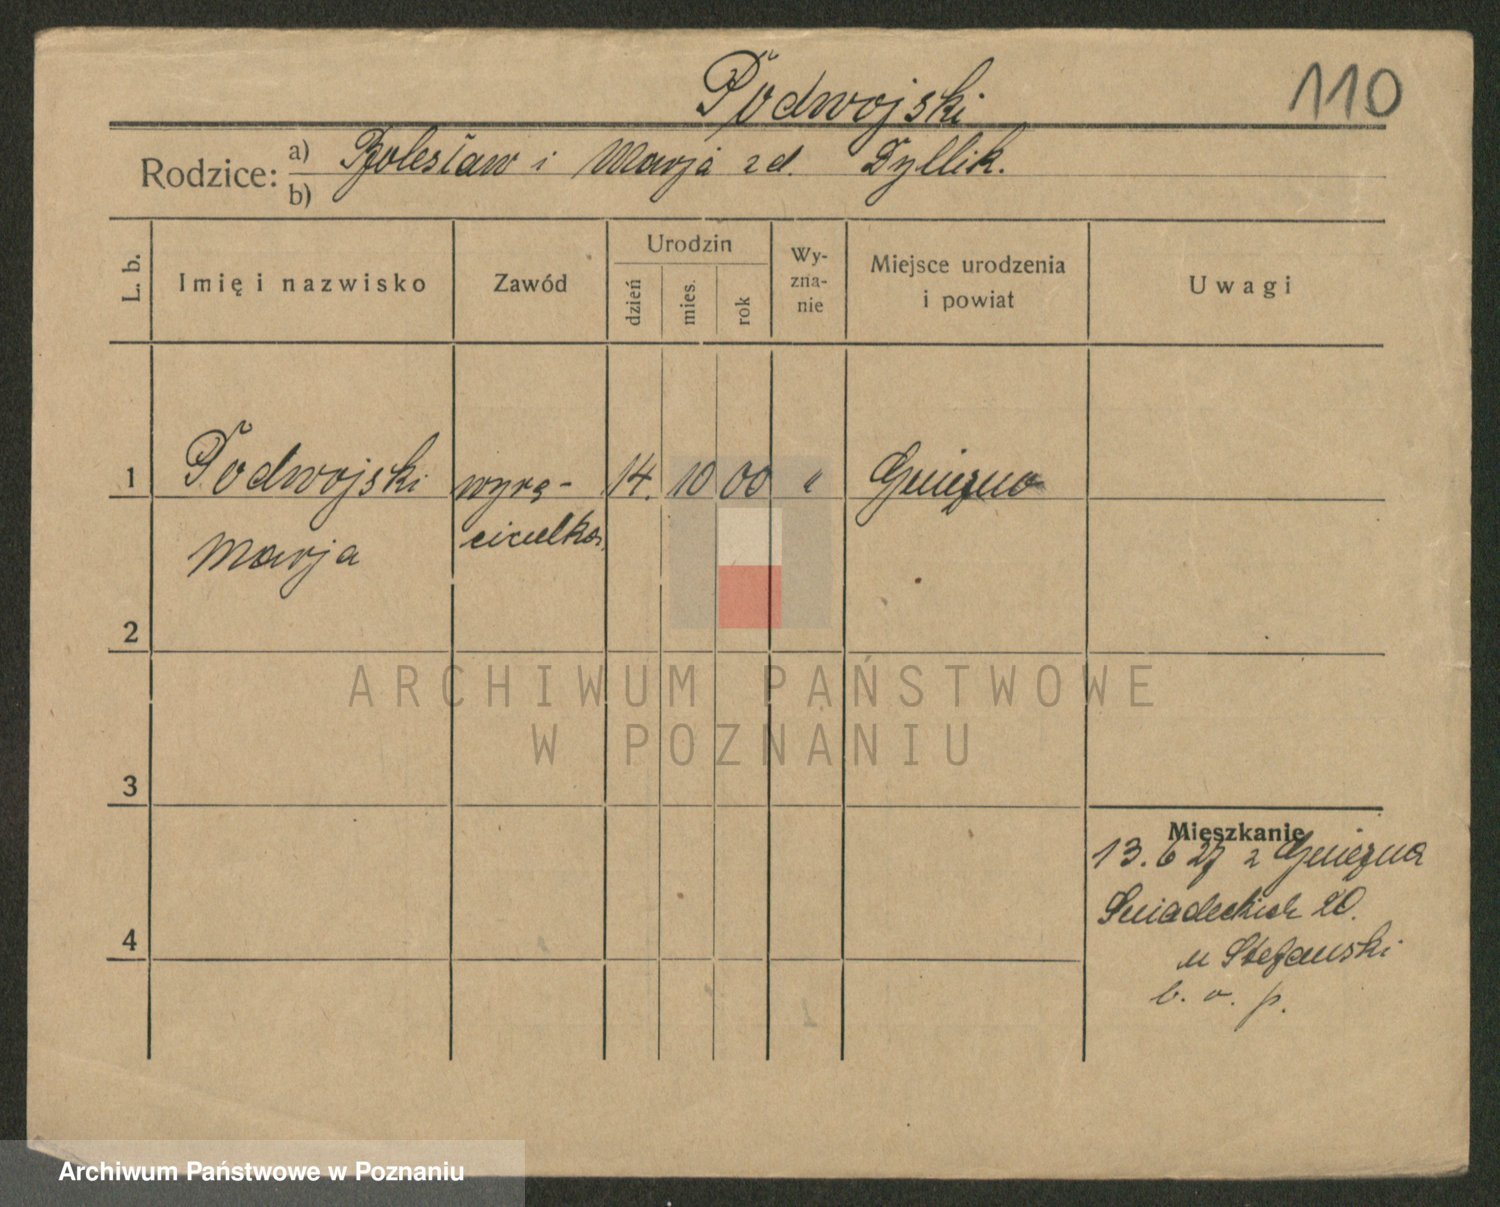 Podwojski
110
Rodzice: a) Bolesław i Marja zd. Dyllik.
b)
L. b.
Imię i nazwisko
Zawód
Urodzin
dzień
mies.
rok
Wy-
zna-
nie
Miejsce urodzenia
i powiat
Uwagi
1 Podwojski wyrę- 14. 10 00 " Gniezno
Marja cicielka
2
3
4
Mieszkanie
13. 6 27 z Gniezna
Śniadeckich 20.
u Stefański
b. o. p.
ARCHIWUM PAŃSTWOWE
W POZNANIU
Archiwum Państwowe w Poznaniu